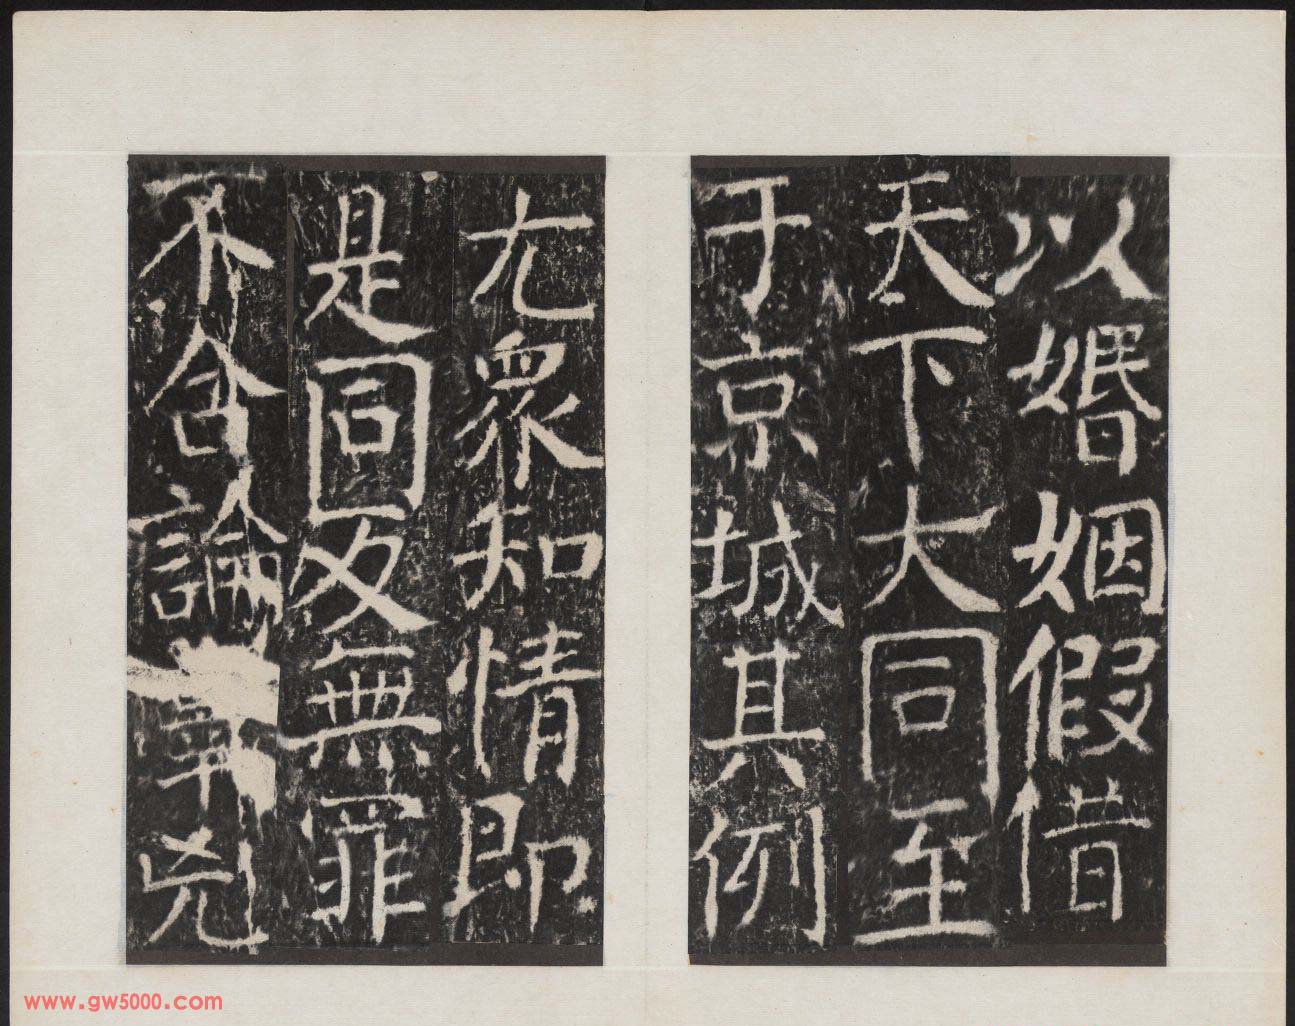 以婚姻假借
天下大同至
于京城其例
尤衆知情即
是同反無罪
不含論事兇
www.gw5000.com